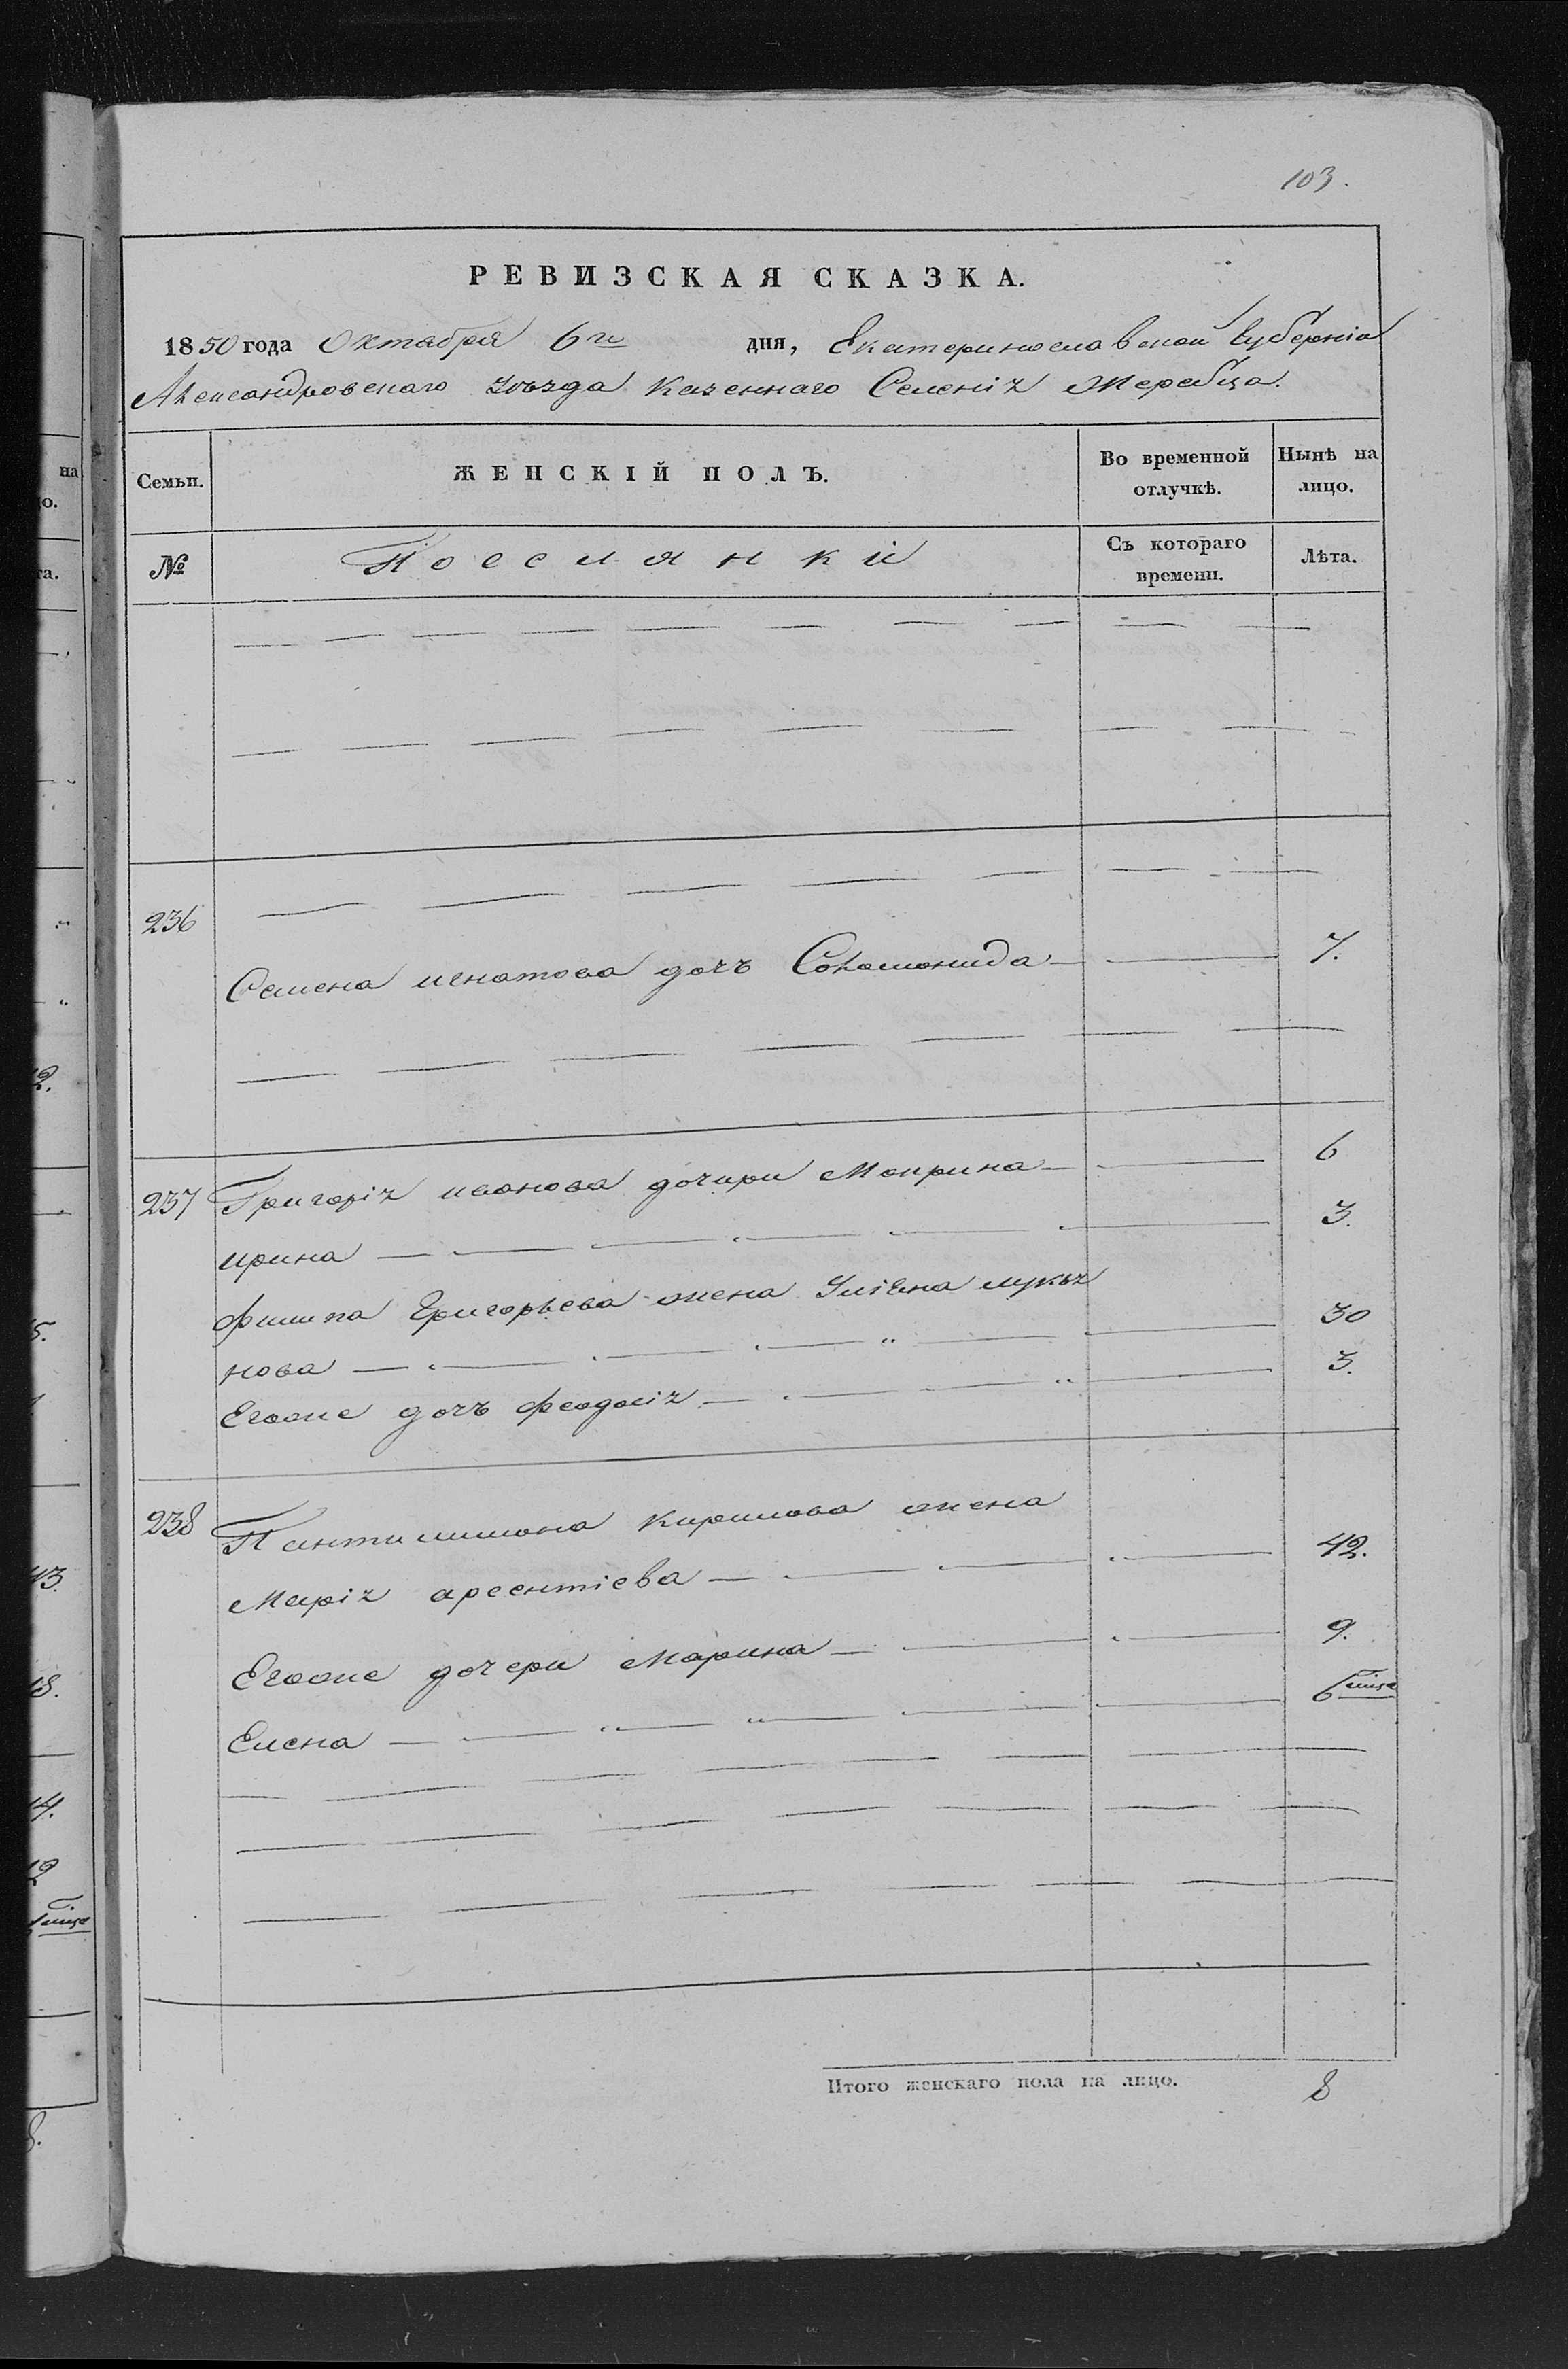 103.
РЕВИЗСКАЯ СКАЗКА.
1850 года Октября 6го дня, Екатеринославской губерніи
Александровскаго уѣзда казеннаго Селенія Жеребца.
Семьи. ЖЕНСКІЙ ПОЛЪ. Во временной отлучкѣ. Нынѣ на лицо.
№ Поселянки Съ котораго времени. Лѣта.
236
Семена игнатова дочь Соломонида 7.
237 Григорія иванова дочери Маприна 6
ирина 3.
филипа Григорьева жена Улі
нова 30
Егоже дочь феодосія 3.
238 Пантилимона Кирилова жена
Марія арсентіева 42.
Егоже дочери Марина 9.
Елена 6 мѣся
Итого женскаго пола на лицо. 8
на
о.
та.
2.
5.
43.
18.
14.
12
мѣся
8.